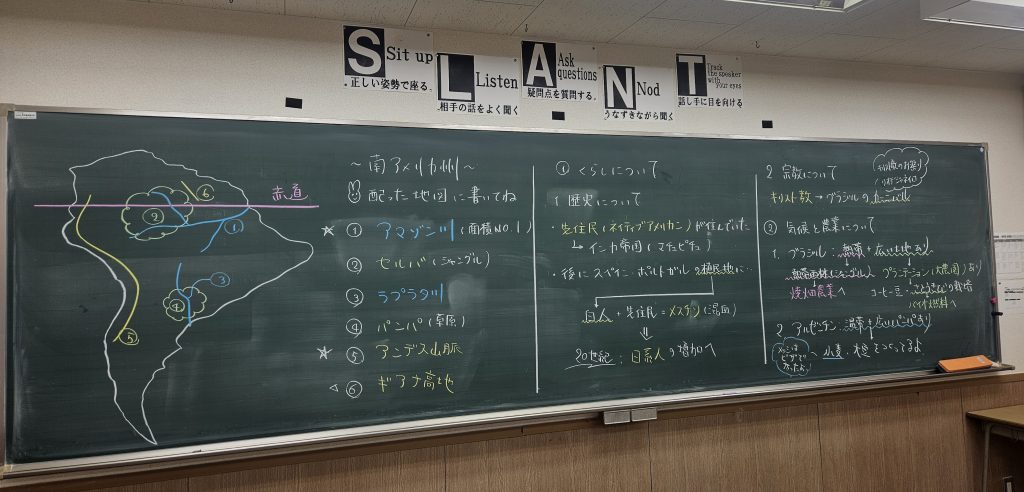 S Sit up
正しい姿勢で座る。
L Listen
相手の話をよく聞く
A Ask questions
疑問点を質問する。
N Nod
うなずきながら聞く
T Track the speaker with your eyes
話し手に目を向ける
赤道
⑥
②
①
③
④
⑤
～南アメリカ州～
配った地図に書いてね
☆ ① アマゾン川(面積NO.1)
② セルバ(ジャングル)
③ ラプラタ川
④ パンパ(草原)
☆ ⑤ アンデス山脈
◁ ⑥ ギアナ高地
① くらしについて
1. 歴史について
・先住民(ネイティブアメリカン)が住んでいた
↳ インカ帝国(マチュピチュ)
・後にスペイン・ポルトガルの植民地に…
白人 + 先住民 = メスチソ(混血)
⇓
20世紀:日系人の増加へ
2. 宗教について
キリスト教→ブラジルの
② 気候と農業について
1. ブラジル:熱帯+広い土地あり
プランテーション(大農園)あり
焼畑農業へ
コーヒー豆・さとうきびの栽培
バイオ燃料へ
2. アルゼンチン:温帯+広いパンパあり
小麦・